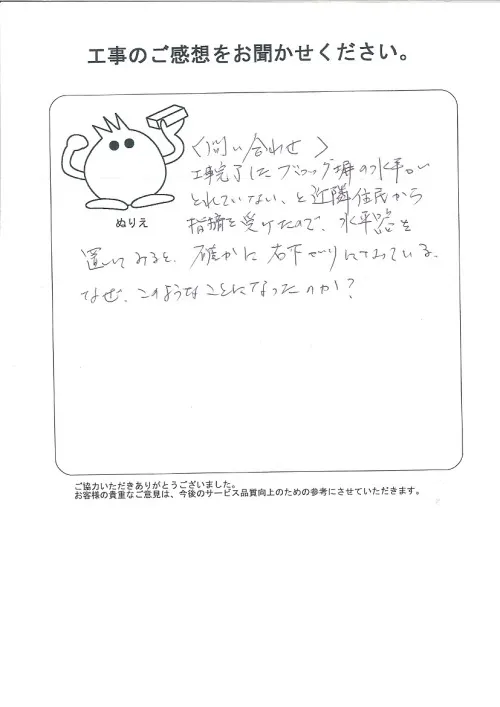 工事のご感想をお聞かせください。
<問い合わせ>
工事完了したブロック塀の水平が
とれていない、と近隣住民から
指摘を受けたので、水平器を
ぬりえ
置いてみると、確かに右下がりになっている。
なぜ、このようなことになったのか?
ご協力いただきありがとうございました。
お客様の貴重なご意見は、今後のサービス品質向上のための参考にさせていただきます。